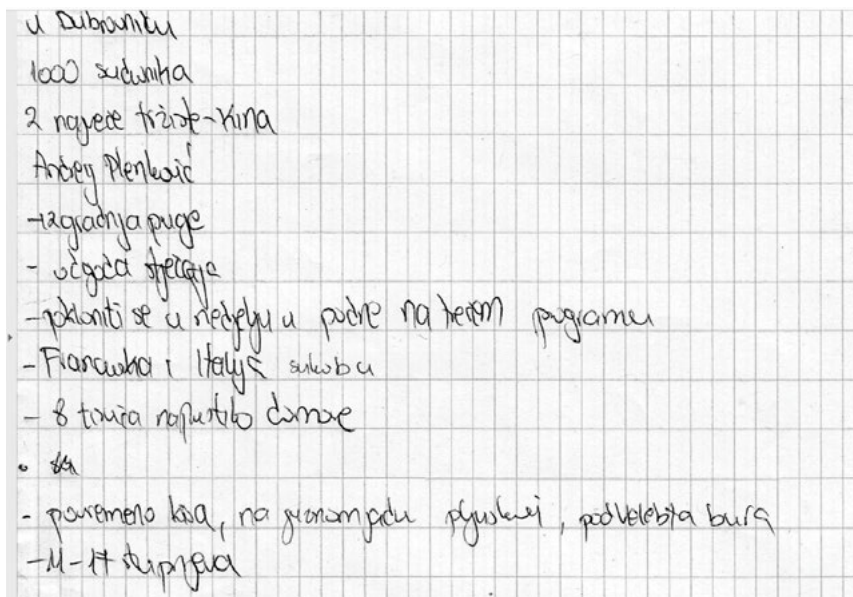 u Dubrovniku
1000 sudionika
2 najveće tržište-Kina
Andrej Plenković
-izgradnja pruge
- odgađa
-pokloniti se u nedjelju u podne na trećem programu
-Francuska i Italija sukobu
- 8 tisuća napustilo domove
- povremeno kiša, na pljuskovi, podVelebita bura
-11-17 stupnjeva